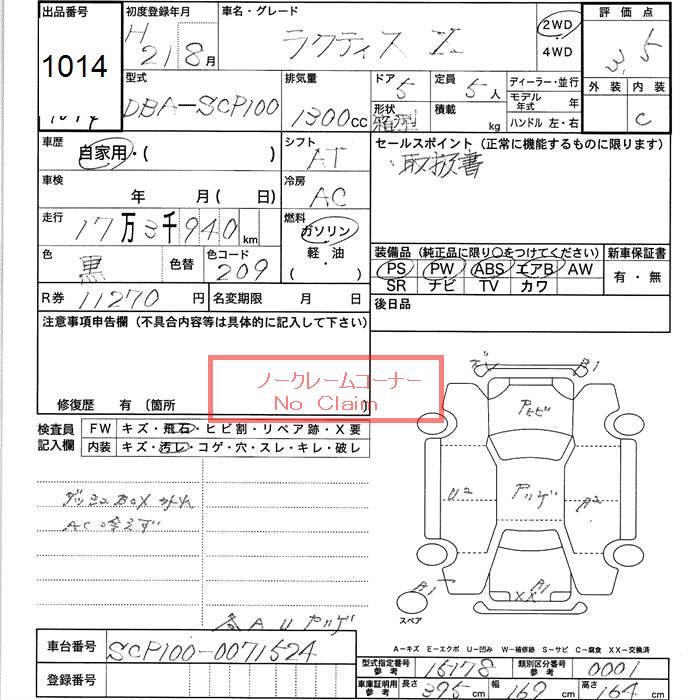 出品番号 1014
初度登録年月 H 21 8月
車名・グレード ラクティス X
2WD
4WD
評価点 3.5
外装 内装 C
型式 DBA-SCP100
排気量 1300cc
ドア 5
定員 5人
ディーラー・並行
モデル年式 年
形状 箱型
積載 kg
ハンドル 左・右
車歴 自家用・( )
シフト AT
セールスポイント(正常に機能するものに限ります)
取扱書
車検 年 月(日)
冷房 AC
走行 17万3千940km
燃料 ガソリン・軽油・( )
色 黒
色替
色コード 209
装備品(純正品に限り〇をつけてください)
PS PW ABS エアB AW
SR ナビ TV カワ
新車保証書
有・無
R券 11270円
名変期限 月 日
後日品
注意事項申告欄(不具合内容等は具体的に記入して下さい)
ノークレームコーナー
No Claim
修復歴 有 〔箇所
検査員記入欄
FW キズ・飛石・ヒビ割・リペア跡・X要
内装 キズ・汚レ・コゲ・穴・スレ・キレ・破レ
ダッシュBOX外れ
AC冷えず
各AUアリ
B1
U2
A2
B1
B1
XX
スペア
A-キズ E-エクボ U-凹み W-補修跡 S-サビ C-腐食 XX-交換済
車台番号 SCP100-0071524
登録番号
型式指定番号参考 15178
類別区分番号参考 0001
車庫証明用参考 長さ 395cm 幅 169cm 高さ 164cm